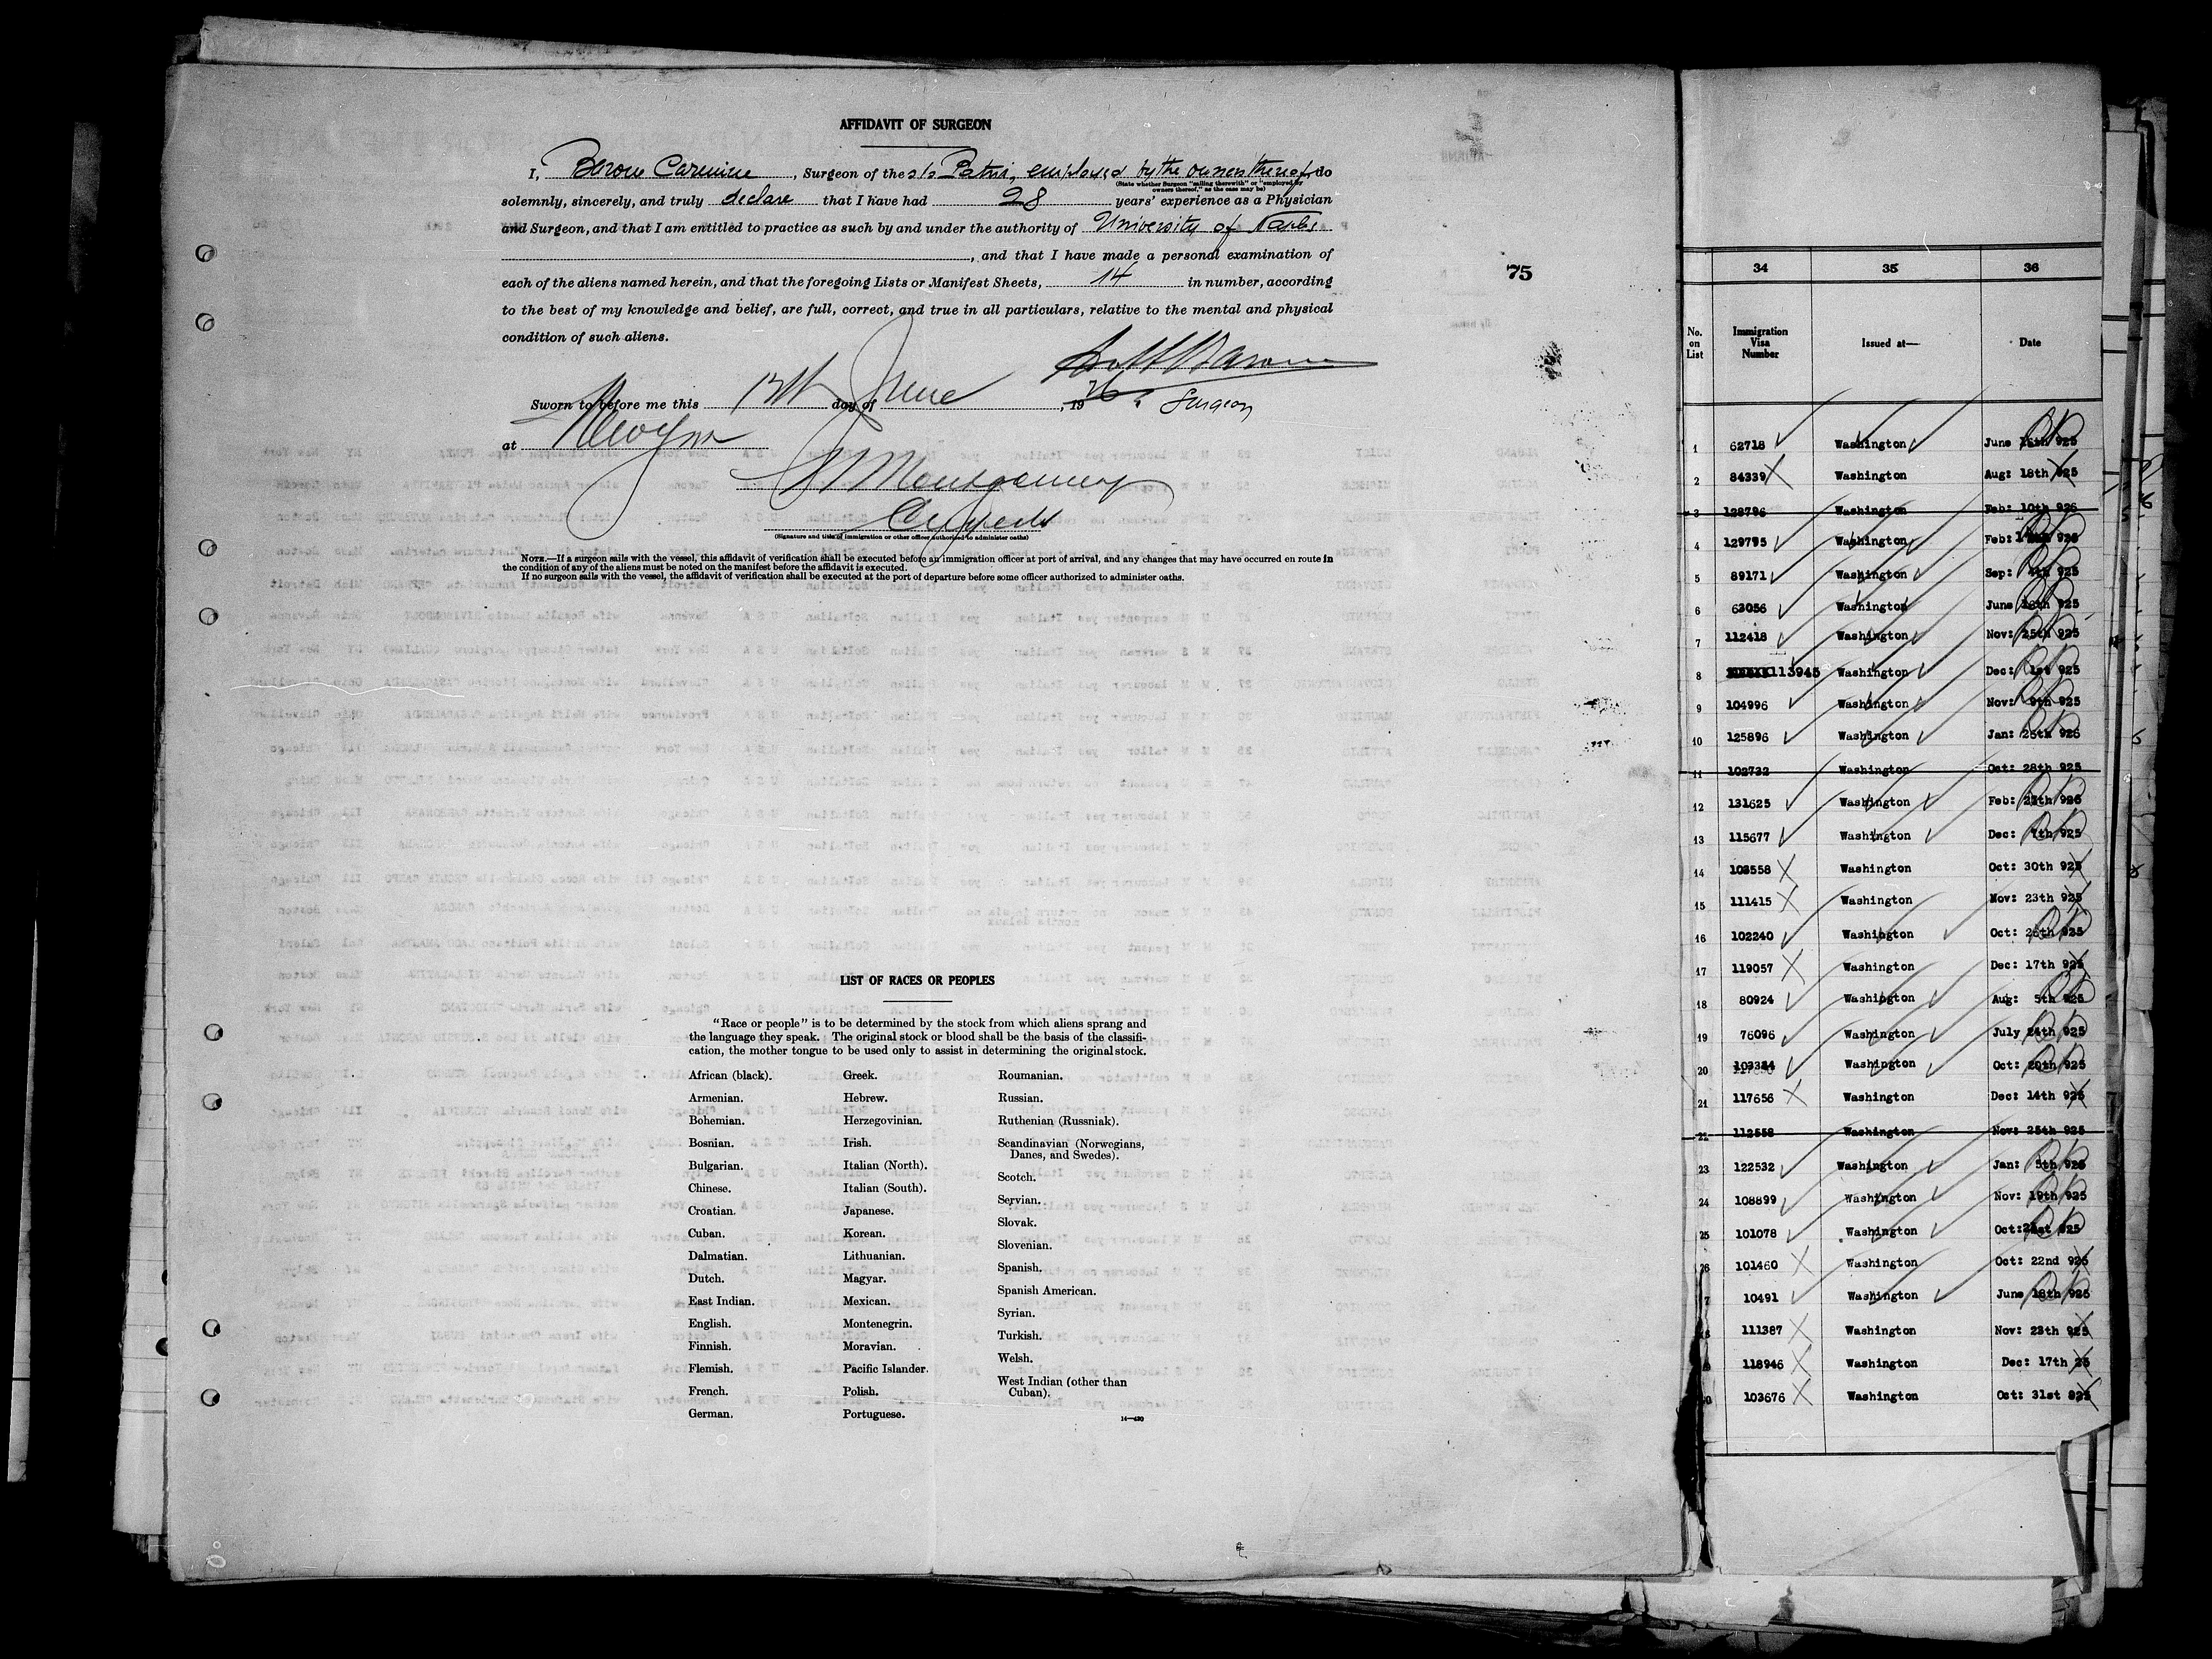 AFFIDAVIT OF SURGEON
I, Barone Carmine, Surgeon of the s/s Patria, employed by the owners thereof, do
(State whether Surgeon "sailing therewith" or "employed by
owners thereof," as the case may be)
solemnly, sincerely, and truly declare that I have had 28 years' experience as a Physician
and Surgeon, and that I am entitled to practice as such by and under the authority of University of Naples
, and that I have made a personal examination of
each of the aliens named herein, and that the foregoing Lists or Manifest Sheets, 14 in number, according
to the best of my knowledge and belief, are full, correct, and true in all particulars, relative to the mental and physical
condition of such aliens.
Sworn to before me this day of June, 1926. Surgeon
at New York
Montgomery
(Signature and title of immigration or other officer authorized to administer oaths)
NOTE.—If a surgeon sails with the vessel, this affidavit of verification shall be executed before an immigration officer at port of arrival, and any changes that may have occurred en route in
the condition of any of the aliens must be noted on the manifest before the affidavit is executed.
If no surgeon sails with the vessel, the affidavit of verification shall be executed at the port of departure before some officer authorized to administer oaths.
75
LIST OF RACES OR PEOPLES
"Race or people" is to be determined by the stock from which aliens sprang and
the language they speak. The original stock or blood shall be the basis of the classifi-
cation, the mother tongue to be used only to assist in determining the original stock.
African (black).
Armenian.
Bohemian.
Bosnian.
Bulgarian.
Chinese.
Croatian.
Cuban.
Dalmatian.
Dutch.
East Indian.
English.
Finnish.
Flemish.
French.
German.
Greek.
Hebrew.
Herzegovinian.
Irish.
Italian (North).
Italian (South).
Japanese.
Korean.
Lithuanian.
Magyar.
Mexican.
Montenegrin.
Moravian.
Pacific Islander.
Polish.
Portuguese.
Roumanian.
Russian.
Ruthenian (Russniak).
Scandinavian (Norwegians,
Danes, and Swedes).
Scotch.
Servian.
Slovak.
Slovenian.
Spanish.
Spanish American.
Syrian.
Turkish.
Welsh.
West Indian (other than
Cuban).
14—430
34 35 36
No. on List Immigration Visa Number Issued at— Date
1 62718 Washington June 925
2 84339 Washington Aug: 18th 925
3 128796 Washington Feb: 10th 926
4 129795 Washington Feb: 926
5 89171 Washington Sep: 4th 925
6 63056 Washington June 18th 925
7 112418 Washington Nov: 25th 925
8 113945 Washington Dec: 1st 925
9 104996 Washington Nov: 9th 925
10 125896 Washington Jan: 25th 926
11 102732 Washington Oct: 28th 925
12 131625 Washington Feb: 926
13 115677 Washington Dec: 7th 925
14 103558 Washington Oct: 30th 925
15 111415 Washington Nov: 23th 925
16 102240 Washington Oct: 26th 925
17 119057 Washington Dec: 17th 925
18 80924 Washington Aug: 5th 925
19 76096 Washington July 24th 925
20 Washington Oct: 20th 925
21 117656 Washington Dec: 14th 925
22 112558 Washington Nov: 25th 925
23 122532 Washington Jan: 5th 926
24 108899 Washington Nov: 19th 925
25 101078 Washington Oct: 21st 925
26 101460 Washington Oct: 22nd 925
7 10491 Washington June 18th 925
111387 Washington Nov: 23th 925
118946 Washington Dec: 17th 25
0 103676 Washington Oct: 31st 925